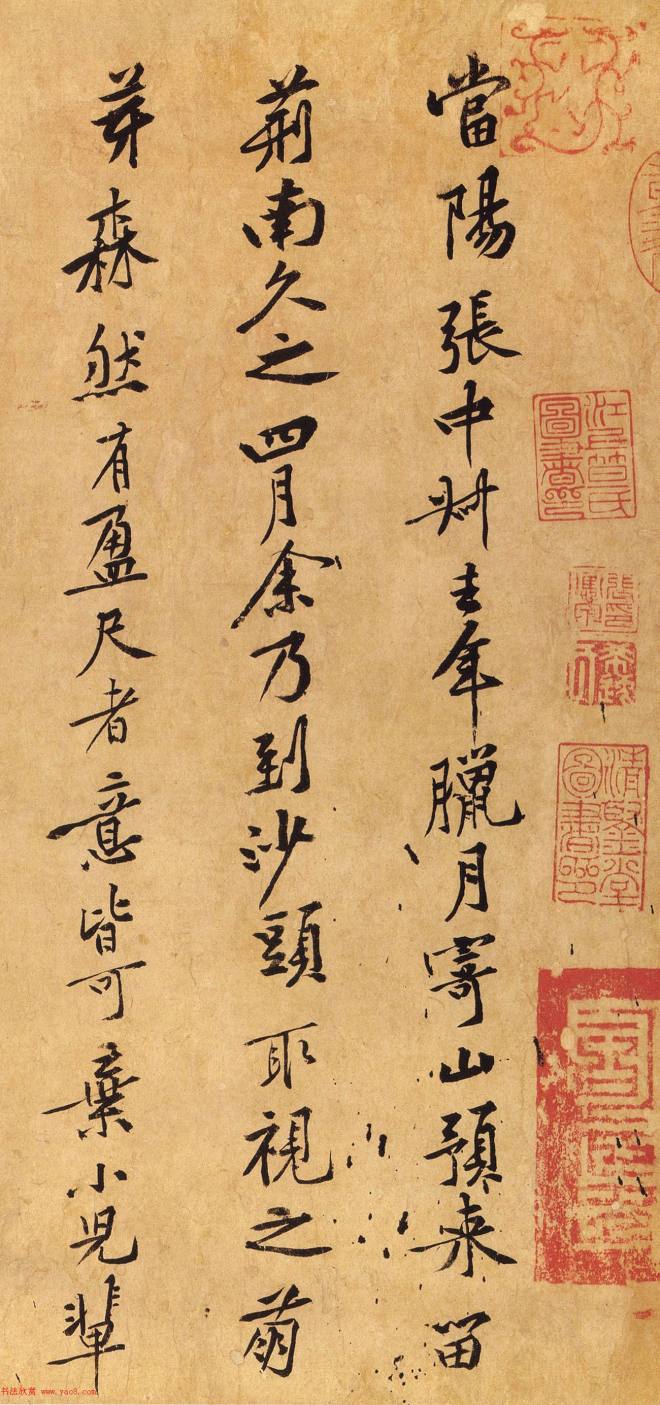 當陽張中叔去年臘月寄山預來留
荊南久之四月余乃到沙頭取視之萌
芽森然有盈尺者意皆可棄小兒輩
清賢堂
圖書印
書法欣賞 www.yac8.com